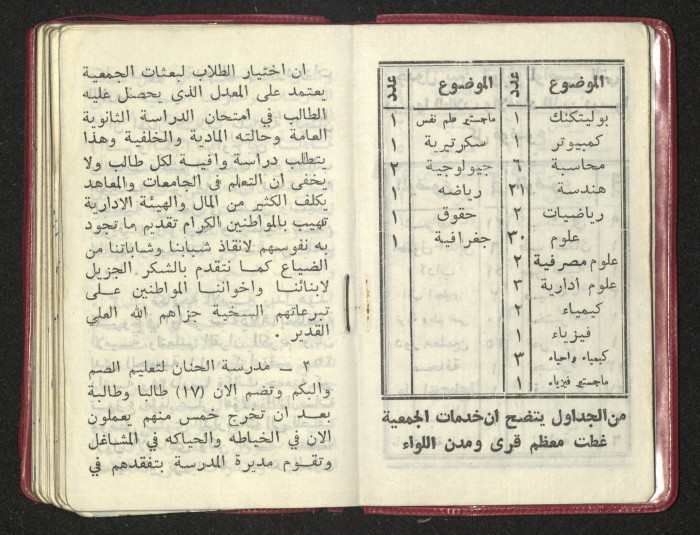 الموضوع عدد الموضوع عدد
بوليتكنك ١ ماجستير علم نفس ١
كمبيوتر ١ سكرتيرية ١
محاسبة ٦ جيولوجية ٢
هندسة ٢١ رياضه ١
رياضيات ٢ حقوق ١
علوم ٣٠ جغرافية ١
علوم مصرفية ٢
علوم ادارية ٣
كيمياء ٢
فيزياء ١
كيمياء واحياء ٣
ماجستير فيزياء ١
من الجداول يتضح ان خدمات الجمعية
غطت معظم قرى ومدن اللواء
ان اختيار الطلاب لبعثات الجمعية
يعتمد على المعدل الذي يحصل عليه
الطالب في امتحان الدراسة الثانوية
العامة وحالته المادية والخلفية وهذا
يتطلب دراسة وافية لكل طالب ولا
يخفى ان التعلم في الجامعات والمعاهد
يكلف الكثير من المال والهيئة الادارية
تهيب بالمواطنين الكرام تقديم ما تجود
به نفوسهم لانقاذ شبابنا وشاباتنا من
الضياع كما نتقدم بالشكر الجزيل
لابنائنا واخواننا المواطنين على
تبرعاتهم السخية جزاهم الله العلي
القدير .
٢ – مدرسة الحنان لتعليم الصم
والبكم وتضم الان (١٧) طالبا وطالبة
بعد ان تخرج خمس منهم يعملون
الان في الخياطه والحياكه في المشاغل
وتقوم مديرة المدرسة بتفقدهم في